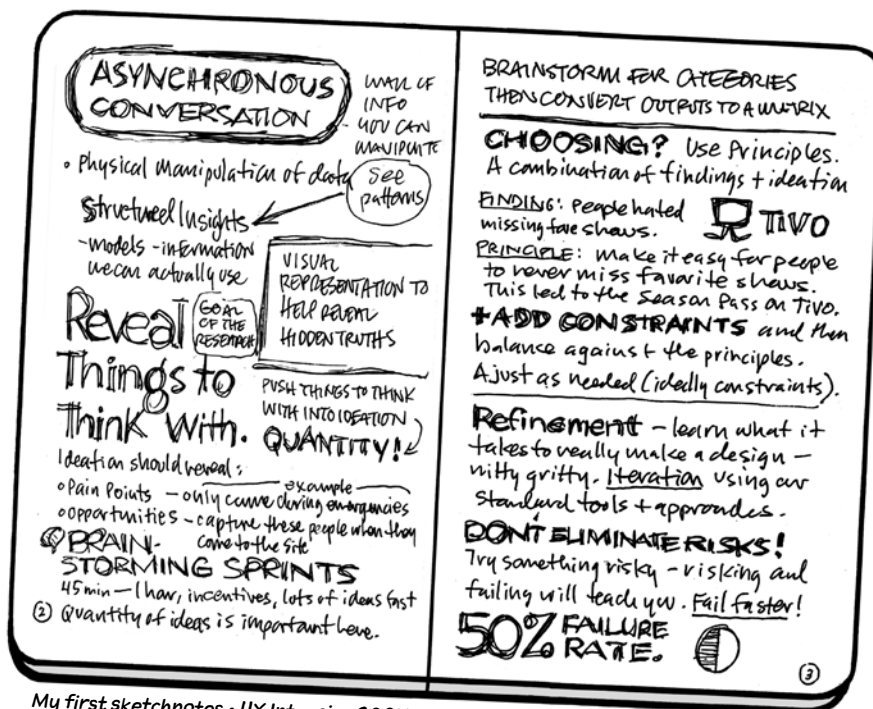 ASYNCHRONOUS
CONVERSATION
WALL OF
INFO
YOU CAN
MANIPULATE
• Physical Manipulation of data
See
patterns
Structured Insights
- models - information
we can actually use
VISUAL
REPRESENTATION TO
HELP REVEAL
HIDDEN TRUTHS
Reveal
GOAL
OF THE
RESEARCH
Things to
Think With.
PUSH THINGS TO THINK
WITH INTO IDEATION
QUANTITY!
Ideation should reveal:
example
• Pain Points — only came during emergencies
• opportunities — capture these people when they
come to the site
BRAIN-
STORMING SPRINTS
45 min — 1 hour, incentives, lots of ideas fast
Quantity of ideas is important here.
2
BRAINSTORM FOR CATEGORIES
THEN CONVERT OUTPUTS TO A MATRIX
CHOOSING? Use Principles.
A combination of findings + ideation
FINDING: people hated
missing fave shows.
TiVO
PRINCIPLE: make it easy for people
to never miss favorite shows.
This led to the Season Pass on TiVo.
+ADD CONSTRAINTS and then
balance against the principles.
Ajust as needed (ideally constraints).
Refinement — learn what it
takes to really make a design —
nitty gritty. Iteration using our
standard tools + approaches.
DON'T ELIMINATE RISKS!
Try something risky - risking and
failing will teach you. Fail faster!
50% FAILURE
RATE.
3
My first sketchnotes • UX